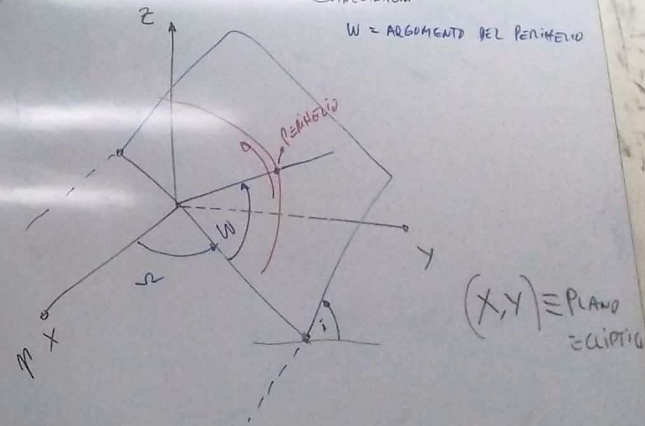 Z
W = ARGOMENTO DEL PERIHELIO
PERIHELIO
W
Ω
Y
i
X
(X,Y) ≡ PLANO
ECLIPTIC